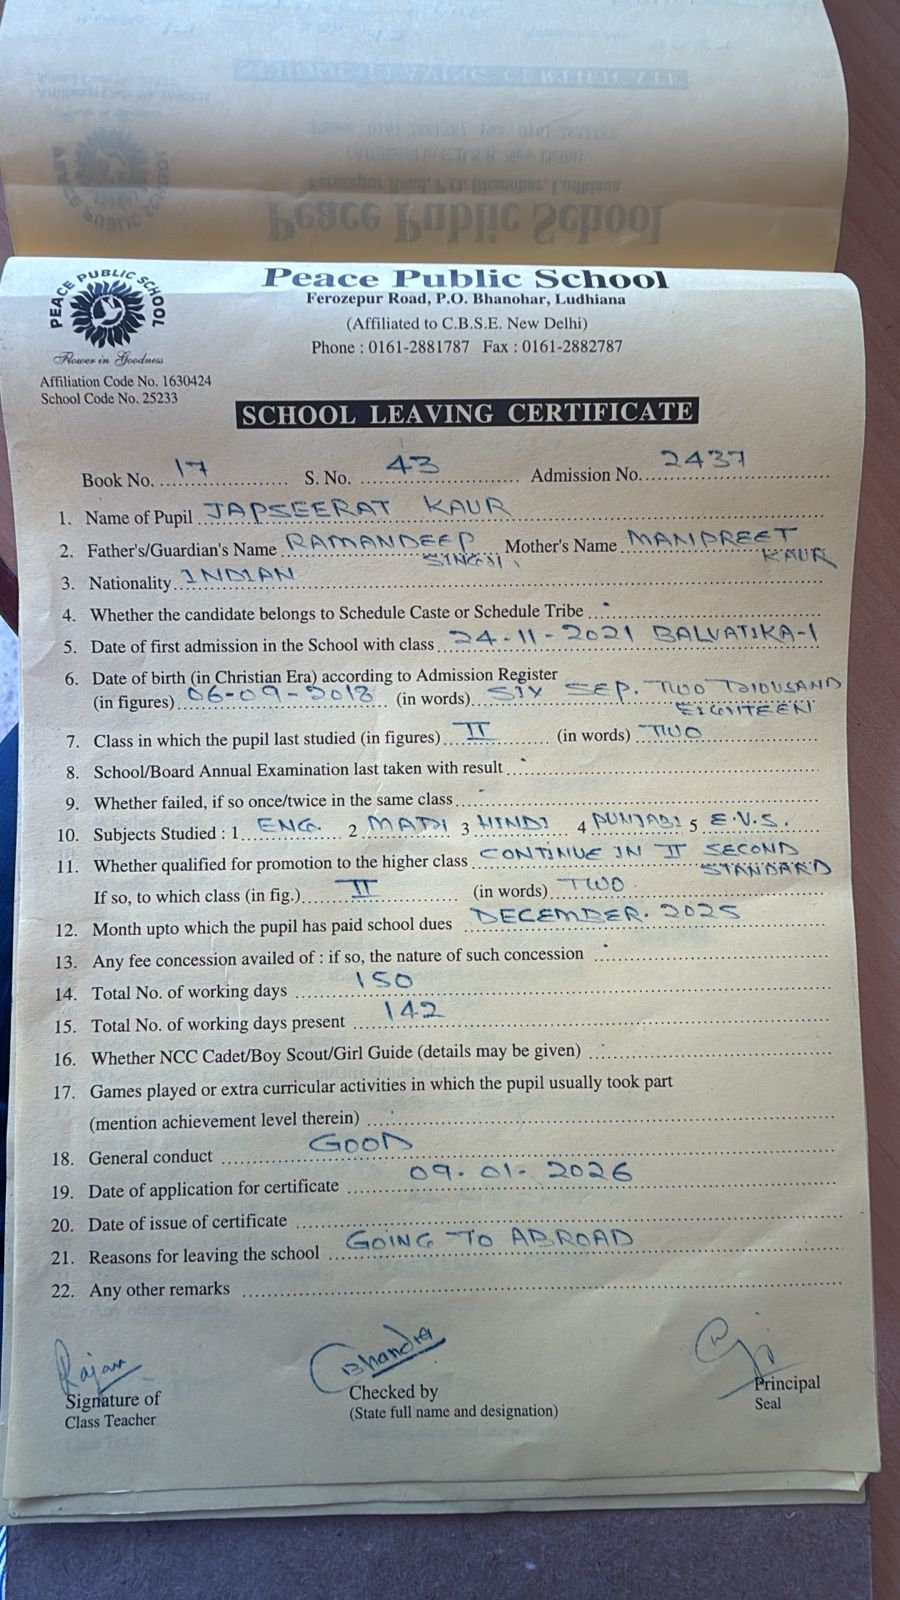 PEACE PUBLIC SCHOOL
Flower in Goodness
Affiliation Code No. 1630424
School Code No. 25233
Peace Public School
Ferozepur Road, P.O. Bhanohar, Ludhiana
(Affiliated to C.B.S.E. New Delhi)
Phone : 0161-2881787 Fax : 0161-2882787
SCHOOL LEAVING CERTIFICATE
Book No. 17 S. No. 43 Admission No. 2437
1. Name of Pupil JAPSEERAT KAUR
2. Father's/Guardian's Name RAMANDEEP SINGH. Mother's Name MANPREET KAUR
3. Nationality INDIAN
4. Whether the candidate belongs to Schedule Caste or Schedule Tribe
5. Date of first admission in the School with class 24-11-2021 BALVATIKA-1
6. Date of birth (in Christian Era) according to Admission Register
(in figures) 06-09-2018 (in words) SIX SEP. TWO THOUSAND EIGHTEEN
7. Class in which the pupil last studied (in figures) II (in words) TWO
8. School/Board Annual Examination last taken with result
9. Whether failed, if so once/twice in the same class
10. Subjects Studied : 1 ENG. 2 MATH 3 HINDI 4 PUNJABI 5 E.V.S.
11. Whether qualified for promotion to the higher class CONTINUE IN II SECOND STANDARD
If so, to which class (in fig.) II (in words) TWO
12. Month upto which the pupil has paid school dues DECEMBER. 2025
13. Any fee concession availed of : if so, the nature of such concession
14. Total No. of working days 150
15. Total No. of working days present 142
16. Whether NCC Cadet/Boy Scout/Girl Guide (details may be given)
17. Games played or extra curricular activities in which the pupil usually took part
(mention achievement level therein)
18. General conduct GOOD
19. Date of application for certificate 09-01-2026
20. Date of issue of certificate
21. Reasons for leaving the school GOING TO ABROAD
22. Any other remarks
Rajan
Signature of
Class Teacher
Chandra
Checked by
(State full name and designation)
Principal
Seal